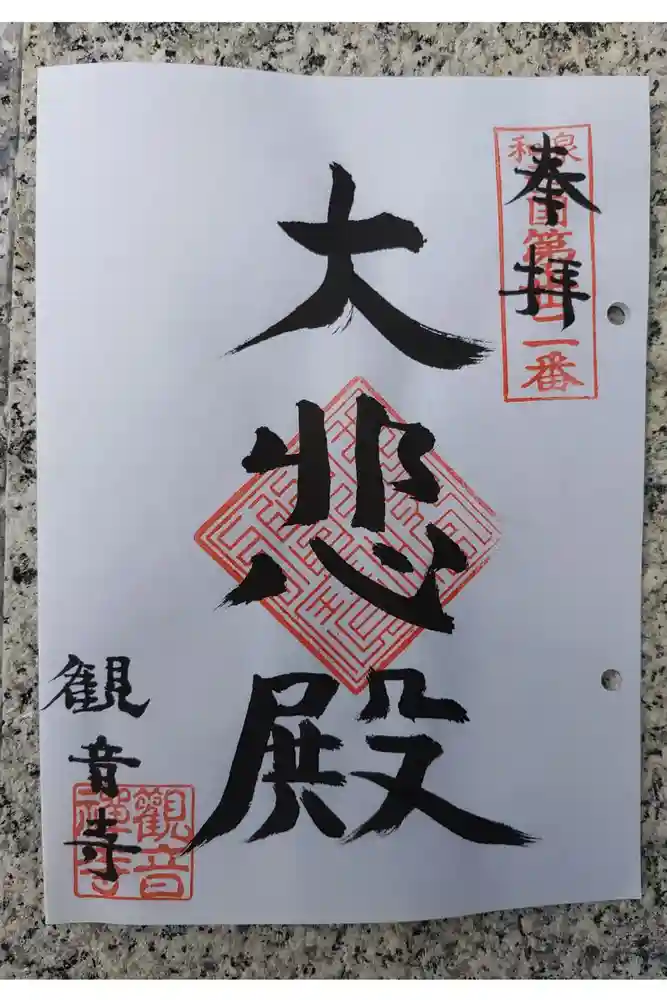 奉拝
和泉
西国第廿二番
大悲殿
観音寺
觀音
禪寺